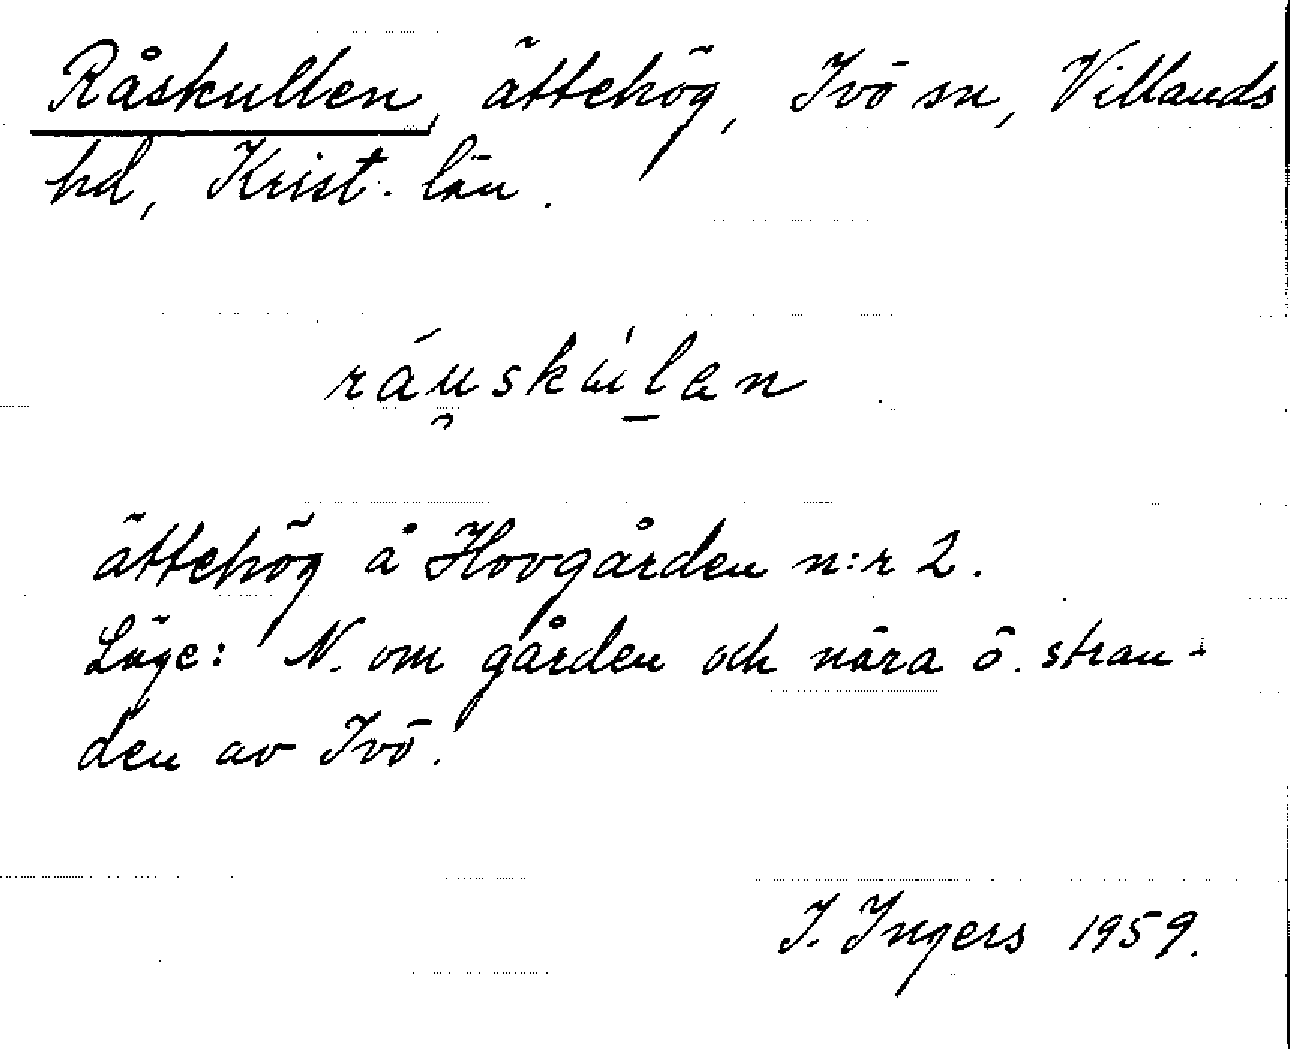 Råskullen, ättehög, Ivö sn, Villands
hd, Krist. län.
ráu̯skúl̠an
ättehög å Hovgården n:r 2.
Läge: N. om gården och nära ö. stran-
den av Ivö.
I. Ingers 1959.